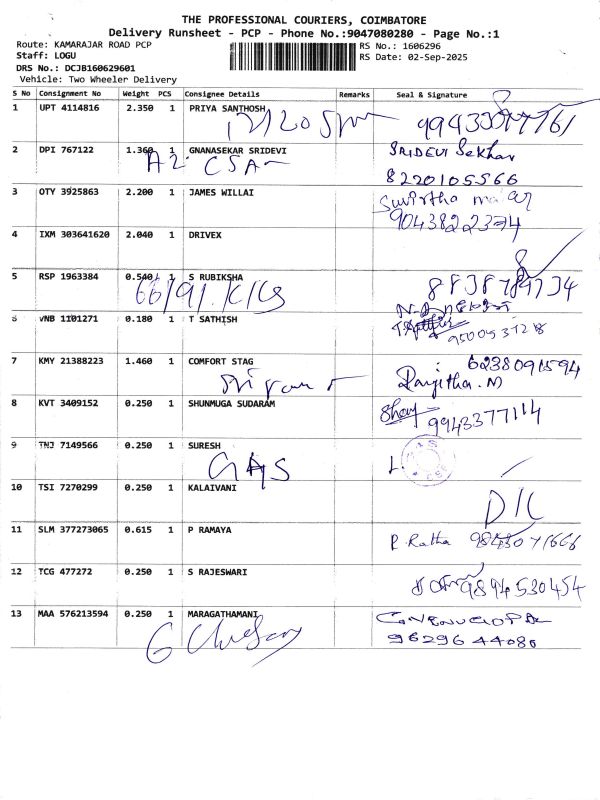 THE PROFESSIONAL COURIERS, COIMBATORE
Delivery Runsheet - PCP - Phone No.:9047080280 - Page No.:1
Route: KAMARAJAR ROAD PCP
RS No.: 1606296
Staff: LOGU
RS Date: 02-Sep-2025
DRS No.: DCJB160629601
Vehicle: Two Wheeler Delivery
S No Consignment No Weight PCS Consignee Details Remarks Seal & Signature
1 UPT 4114816 2.350 1 PRIYA SANTHOSH
2 DPI 767122 1.360 1 GNANASEKAR SRIDEVI SRIDEVI Sekhar
8220105566
3 OTY 3925863 2.200 1 JAMES WILLAI
9043822374
4 IXM 303641620 2.040 1 DRIVEX
5 RSP 1963384 0.540 1 S RUBIKSHA
6 VNB 1101271 0.180 1 T SATHISH
7 KMY 21388223 1.460 1 COMFORT STAG 6238091594
Ranjitha.M
8 KVT 3409152 0.250 1 SHUNMUGA SUDARAM
9943377114
9 TNJ 7149566 0.250 1 SURESH
10 TSI 7270299 0.250 1 KALAIVANI
D/C
11 SLM 377273065 0.615 1 P RAMAYA
P. Ratha
12 TCG 477272 0.250 1 S RAJESWARI
9894530454
13 MAA 576213594 0.250 1 MARAGATHAMANI
9629644080